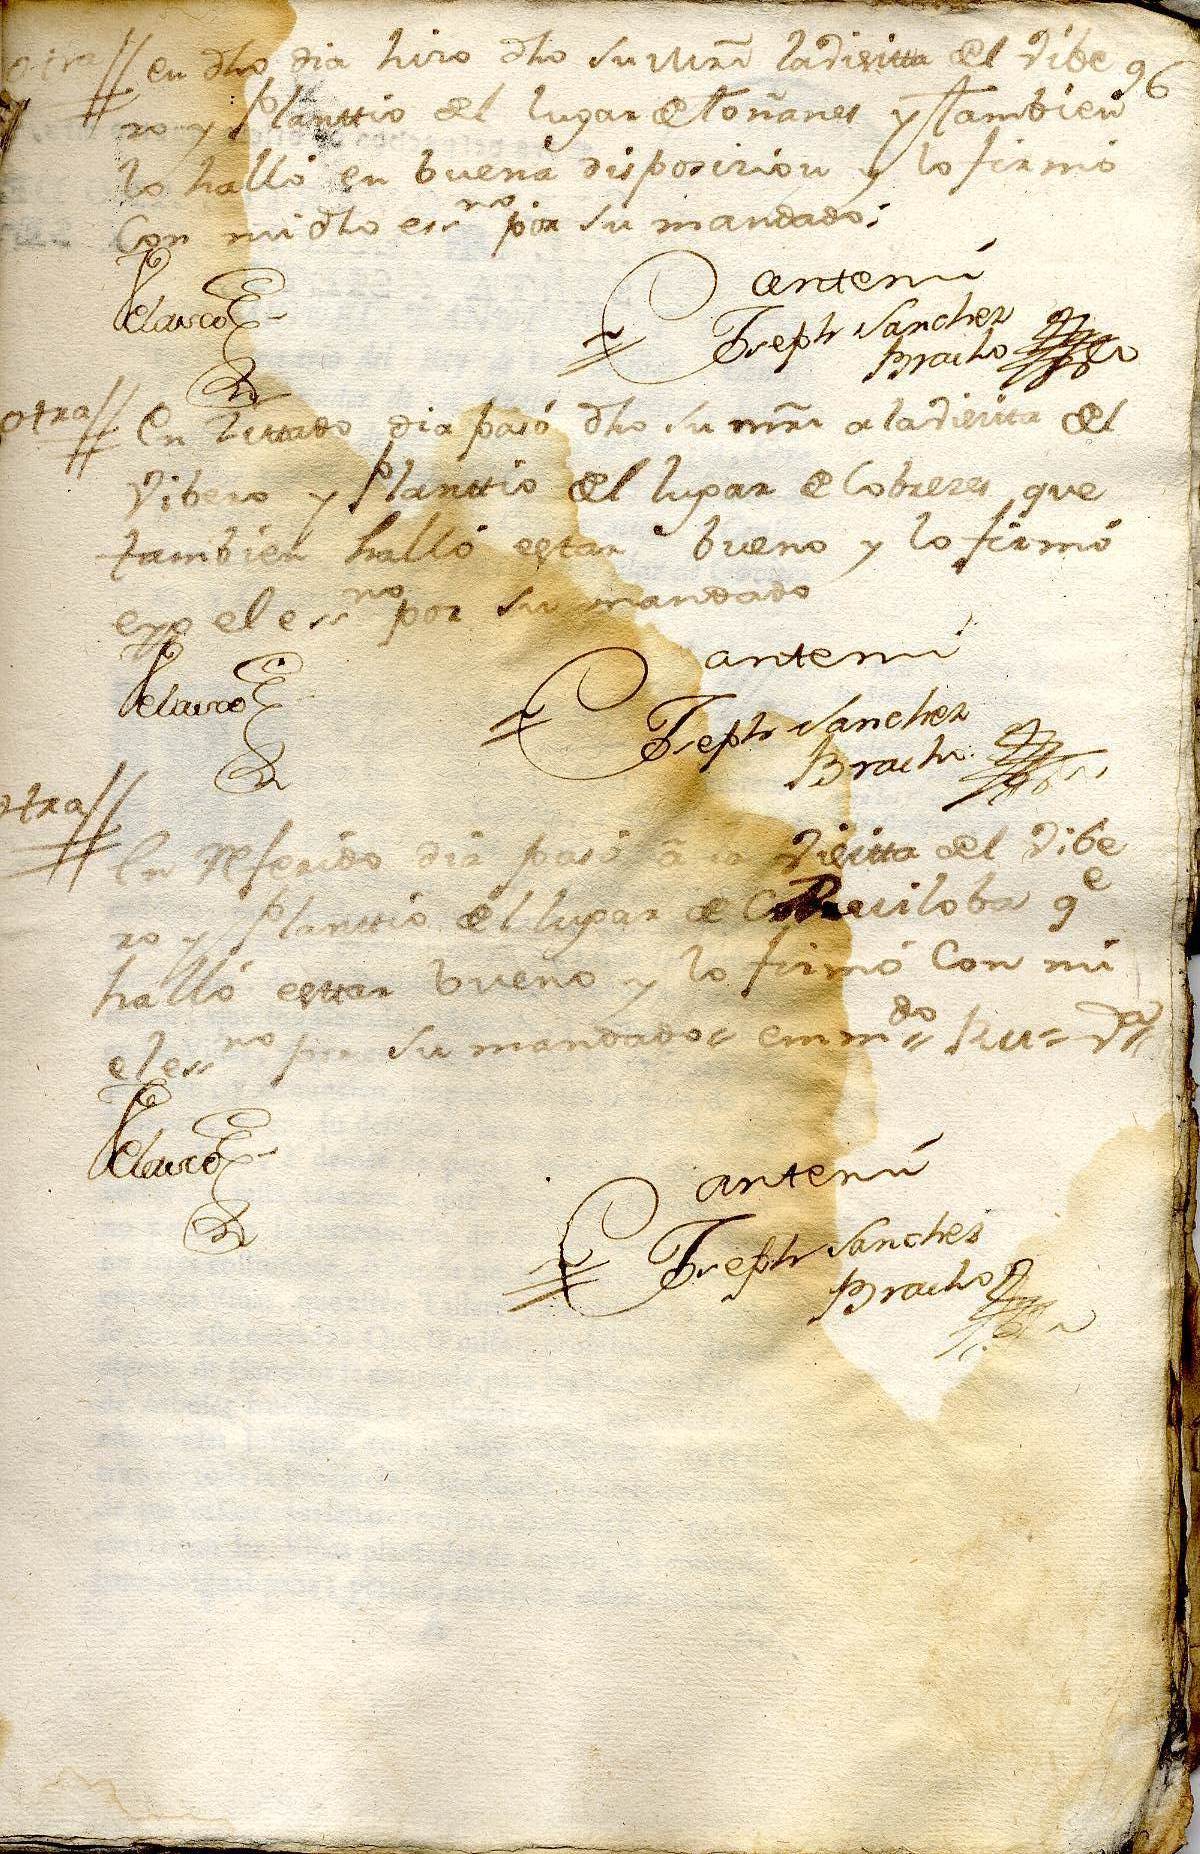 96
otra // en dho dia hizo dho su Mrd. la visitta del vibe
ro y planttio del lugar de toñanes y tambien
lo halló en buena disposizion y lo firmó
Con mi dho essno por su mandado:
Velasco
antemi
Joseph Sanchez
Bracho
otra // En zittado dia pasó dho su mrd. a la visitta del
vibero y planttio del lugar de Cobrezes que
tambien halló estar bueno y lo firmó
e yo el essno por su mandado
Velasco
antemi
Joseph Sanchez
Bracho
otra // En referido dia pasó â la visitta del vibe
ro y planttio del lugar de ruiloba qe
halló esttar bueno y lo firmó Con mi
el essno por su mandado = emmdo = Rui = Va
Velasco
antemi
Joseph Sanchez
Bracho